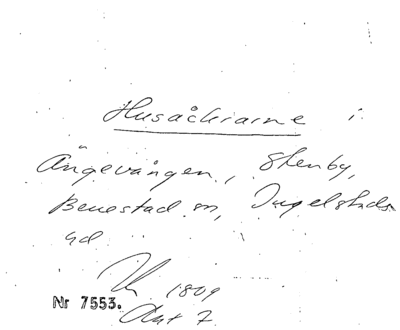 Husåkrarne i
Ängevången, Stenby,
Benestad sn, Ingelstads
hd
1809
Nr 7553. Akt 7